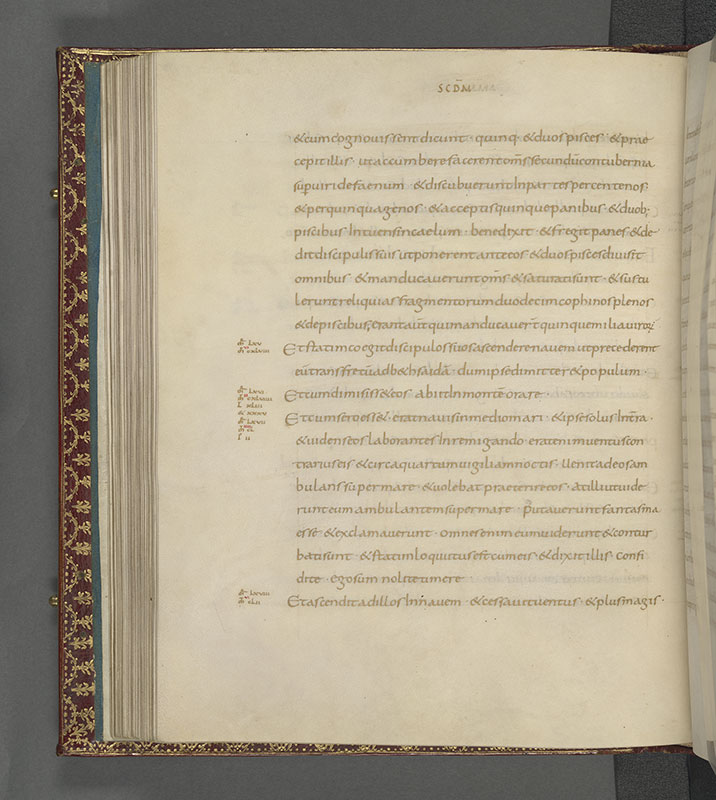 SCDM
&cum cognouissent dicunt · quinq; &duos pisces · &prae
cepit illis · ut accumbere facerent oms secundu contubernia
sup uiride faenum · &discubuerunt In partes per centenos ·
&per quinquagenos · &acceptis quinque panibus · &duob;
piscibus Intuens In caelum · benedixit · &fregit panes · &de
dit discipulis suis ut ponerent ante eos · &duos pisces diuisit
omnibus · &manducauerunt oms · &saturati sunt · &sustu
lerunt reliquias fragmentorum duodecim cophinos plenos
&de piscibus, erant aut qui manducauert quinque milia uiror
Et statim coegit discipulos suos ascendere nauem · ut praecederent
eu trans fretu ad b&hsaida · dum ipse dimitter& populum ·
Et cum dimisiss& eos · abiit In monte orare ·
Et cum sero ess& · erat nauis In medio mari · &ipse solus In terra ·
&uidens eos laborantes In remigando · erat enim uentus con
trarius eis · &circa quartam uigiliam noctis · uenit ad eos am
bulans supermare · &uolebat praeterire eos · at illi ut uide
runt eum ambulantem supermare · putauerunt fantasma
esse · &exclamauerunt · omnes enim eum uiderunt &contur
bati sunt · &statim loquutus est cum eis · &dixit illis · confi
dite · ego sum nolite timere
Et ascendit ad illos In nauem · &cessauit uentus · &plus magis ·